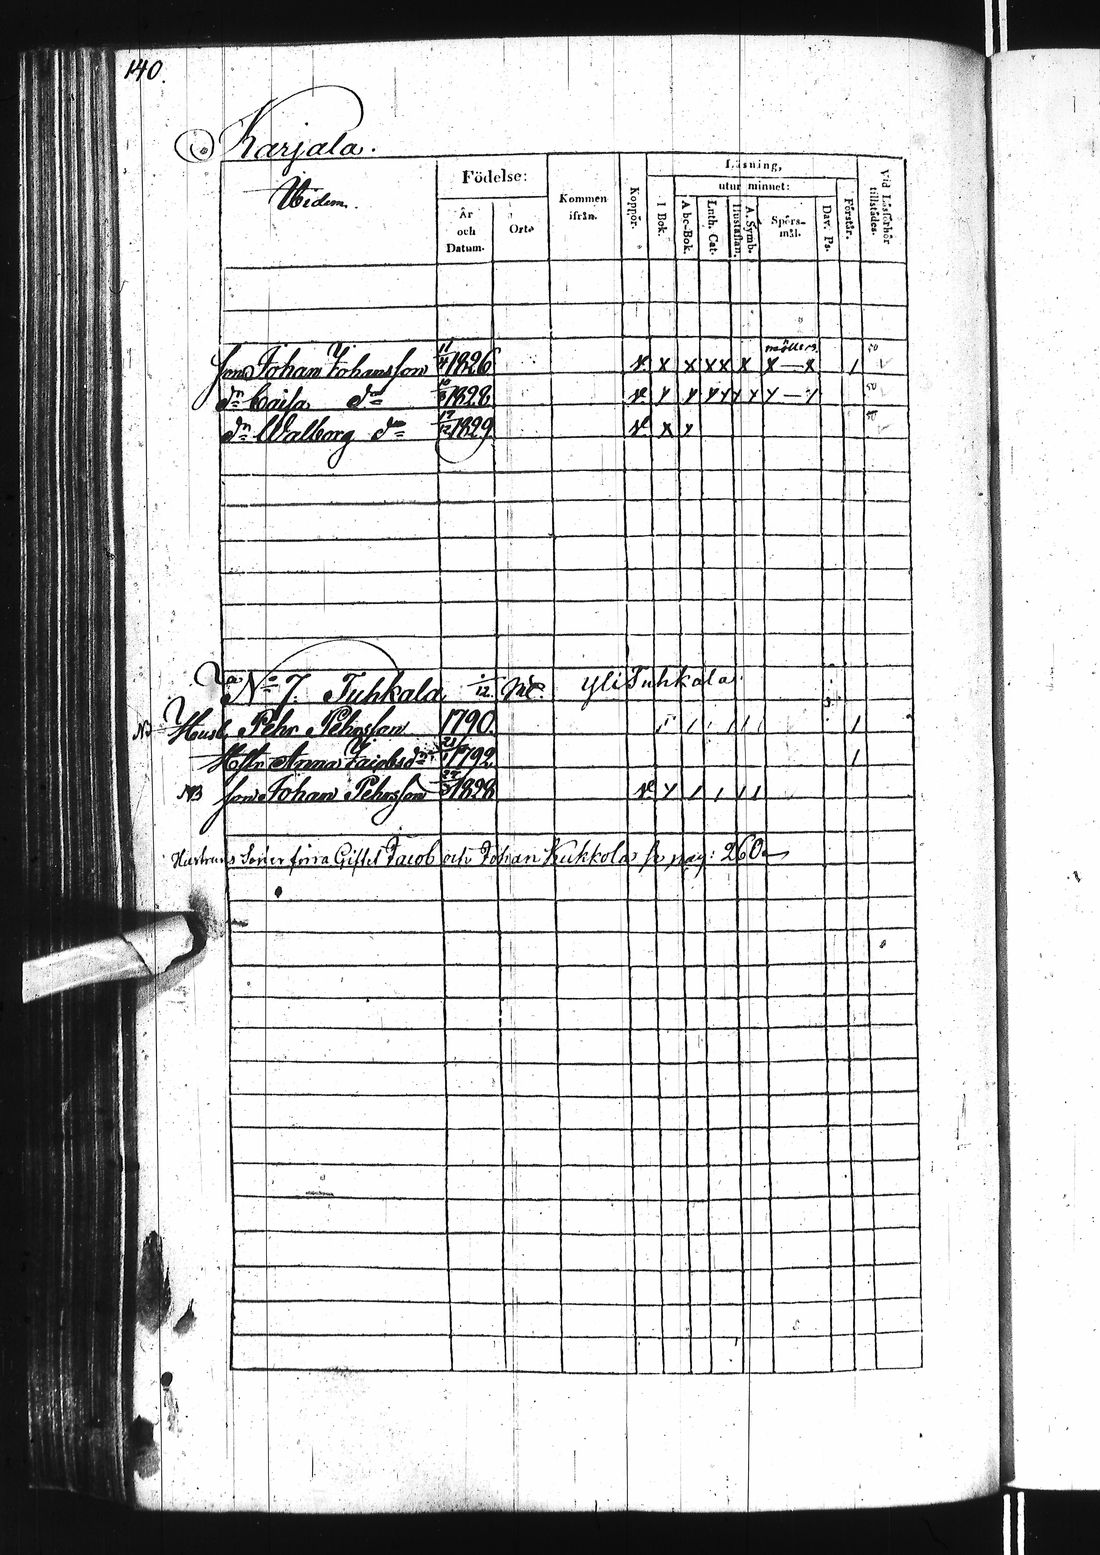 140.
Karjala.
Widem.
Födelse:
År och Datum.
Ort
Kommen ifrån.
Koppor.
Läsning,
utur minnet:
I Bok.
Abc-Bok.
Luth. Cat.
Hustaflan.
A. Symb.
Spörs-mål.
Dav. Ps.
Förstår.
Vid Läsförhör tillstädes.
Son Johan Johansson 11/4 1826 v. x x x x x x — x 1
Dn Caisa Dn 10/3 1828 v. y y y y y y y — y
Dn Walborg Dn 17/12 1829 v. x y
No 7. Tuhkala 1/12 Yli Tuhkala
NB Husb. Pehr Pehrsson 1790. 1
Hstr Anna Jacobsdr 1792 1
NB Son Johan Pehrsson 1828 v. y
Hustruns Söner förra Giftet Jacob och Johan Kukkola se pag: 260